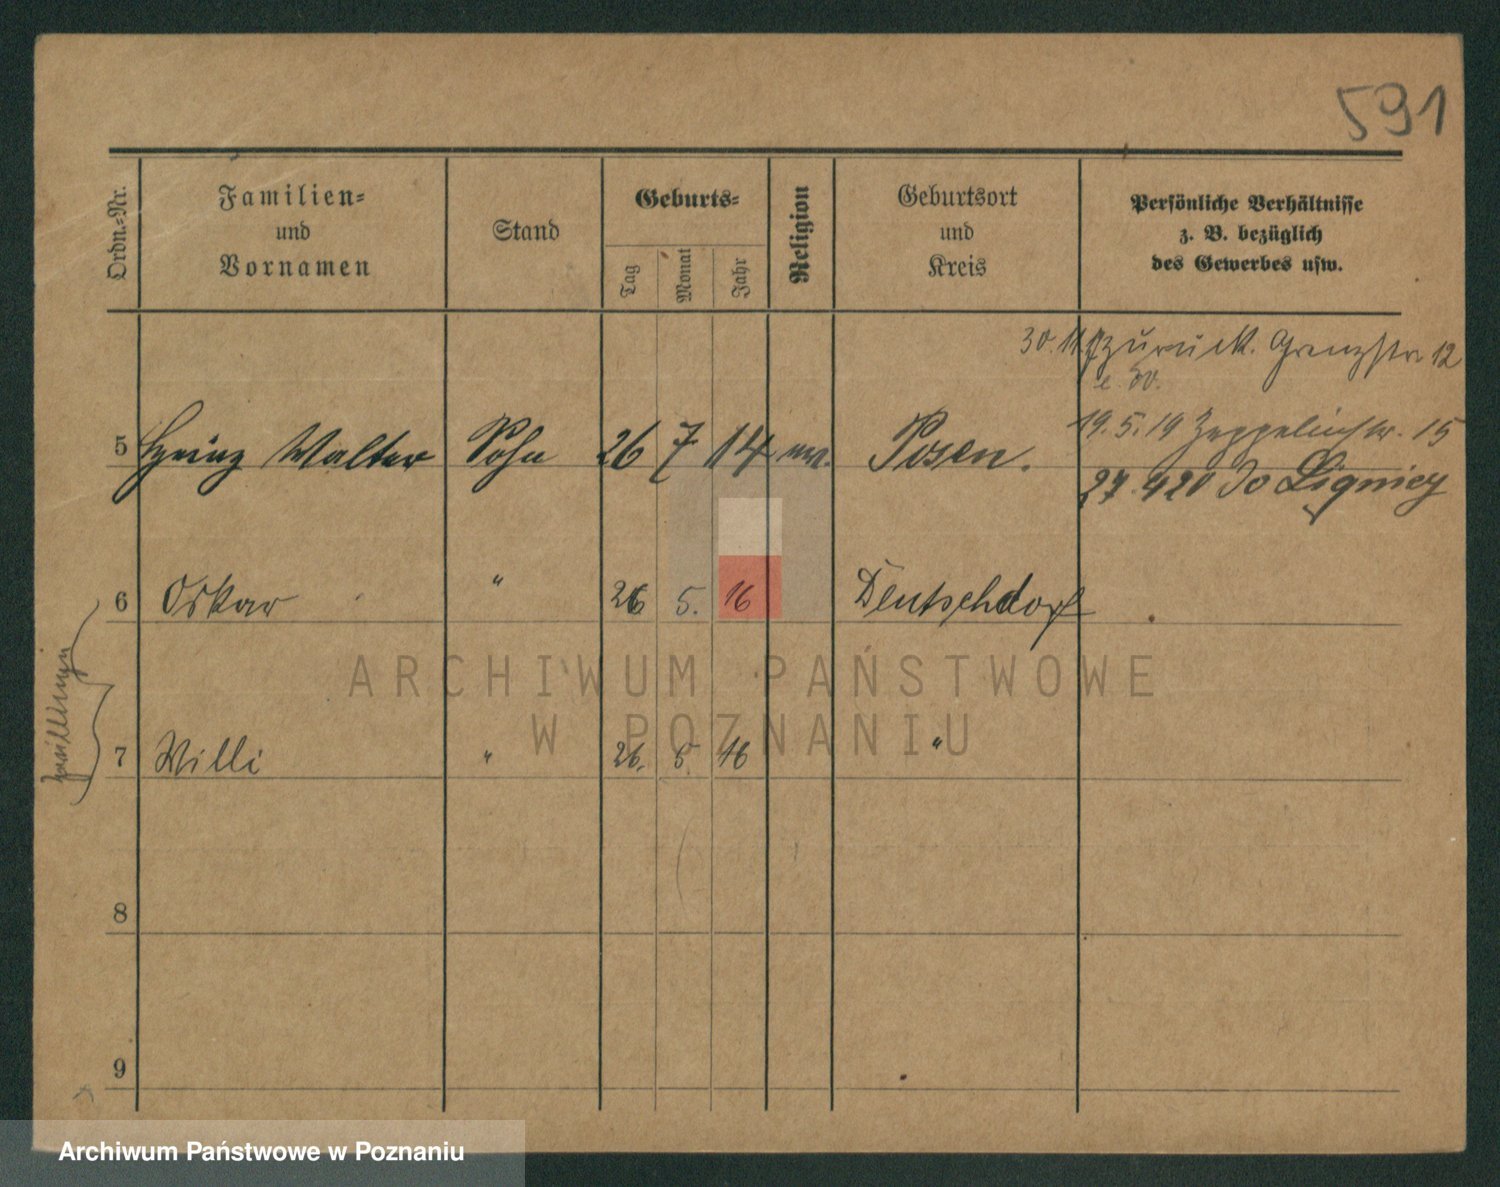 591
Ordn.-Nr.
Familien-
und
Vornamen
Stand
Geburts-
Tag
Monat
Jahr
Religion
Geburtsort
und
Kreis
Persönliche Verhältnisse
z. B. bezüglich
des Gewerbes usw.
30.11.17 zurück. Grenzstr. 12
19.5.19 Zeppelinstr. 15
5 Heinz Walter Sohn 26 7 14 Posen.
27.420 Liegnitz
6 Oskar " 26 5. 16 Deutschdorf
Zwillinge
7 Willi " 26. 5. 16 "
8
9
ARCHIWUM PAŃSTWOWE
W POZNANIU
Archiwum Państwowe w Poznaniu